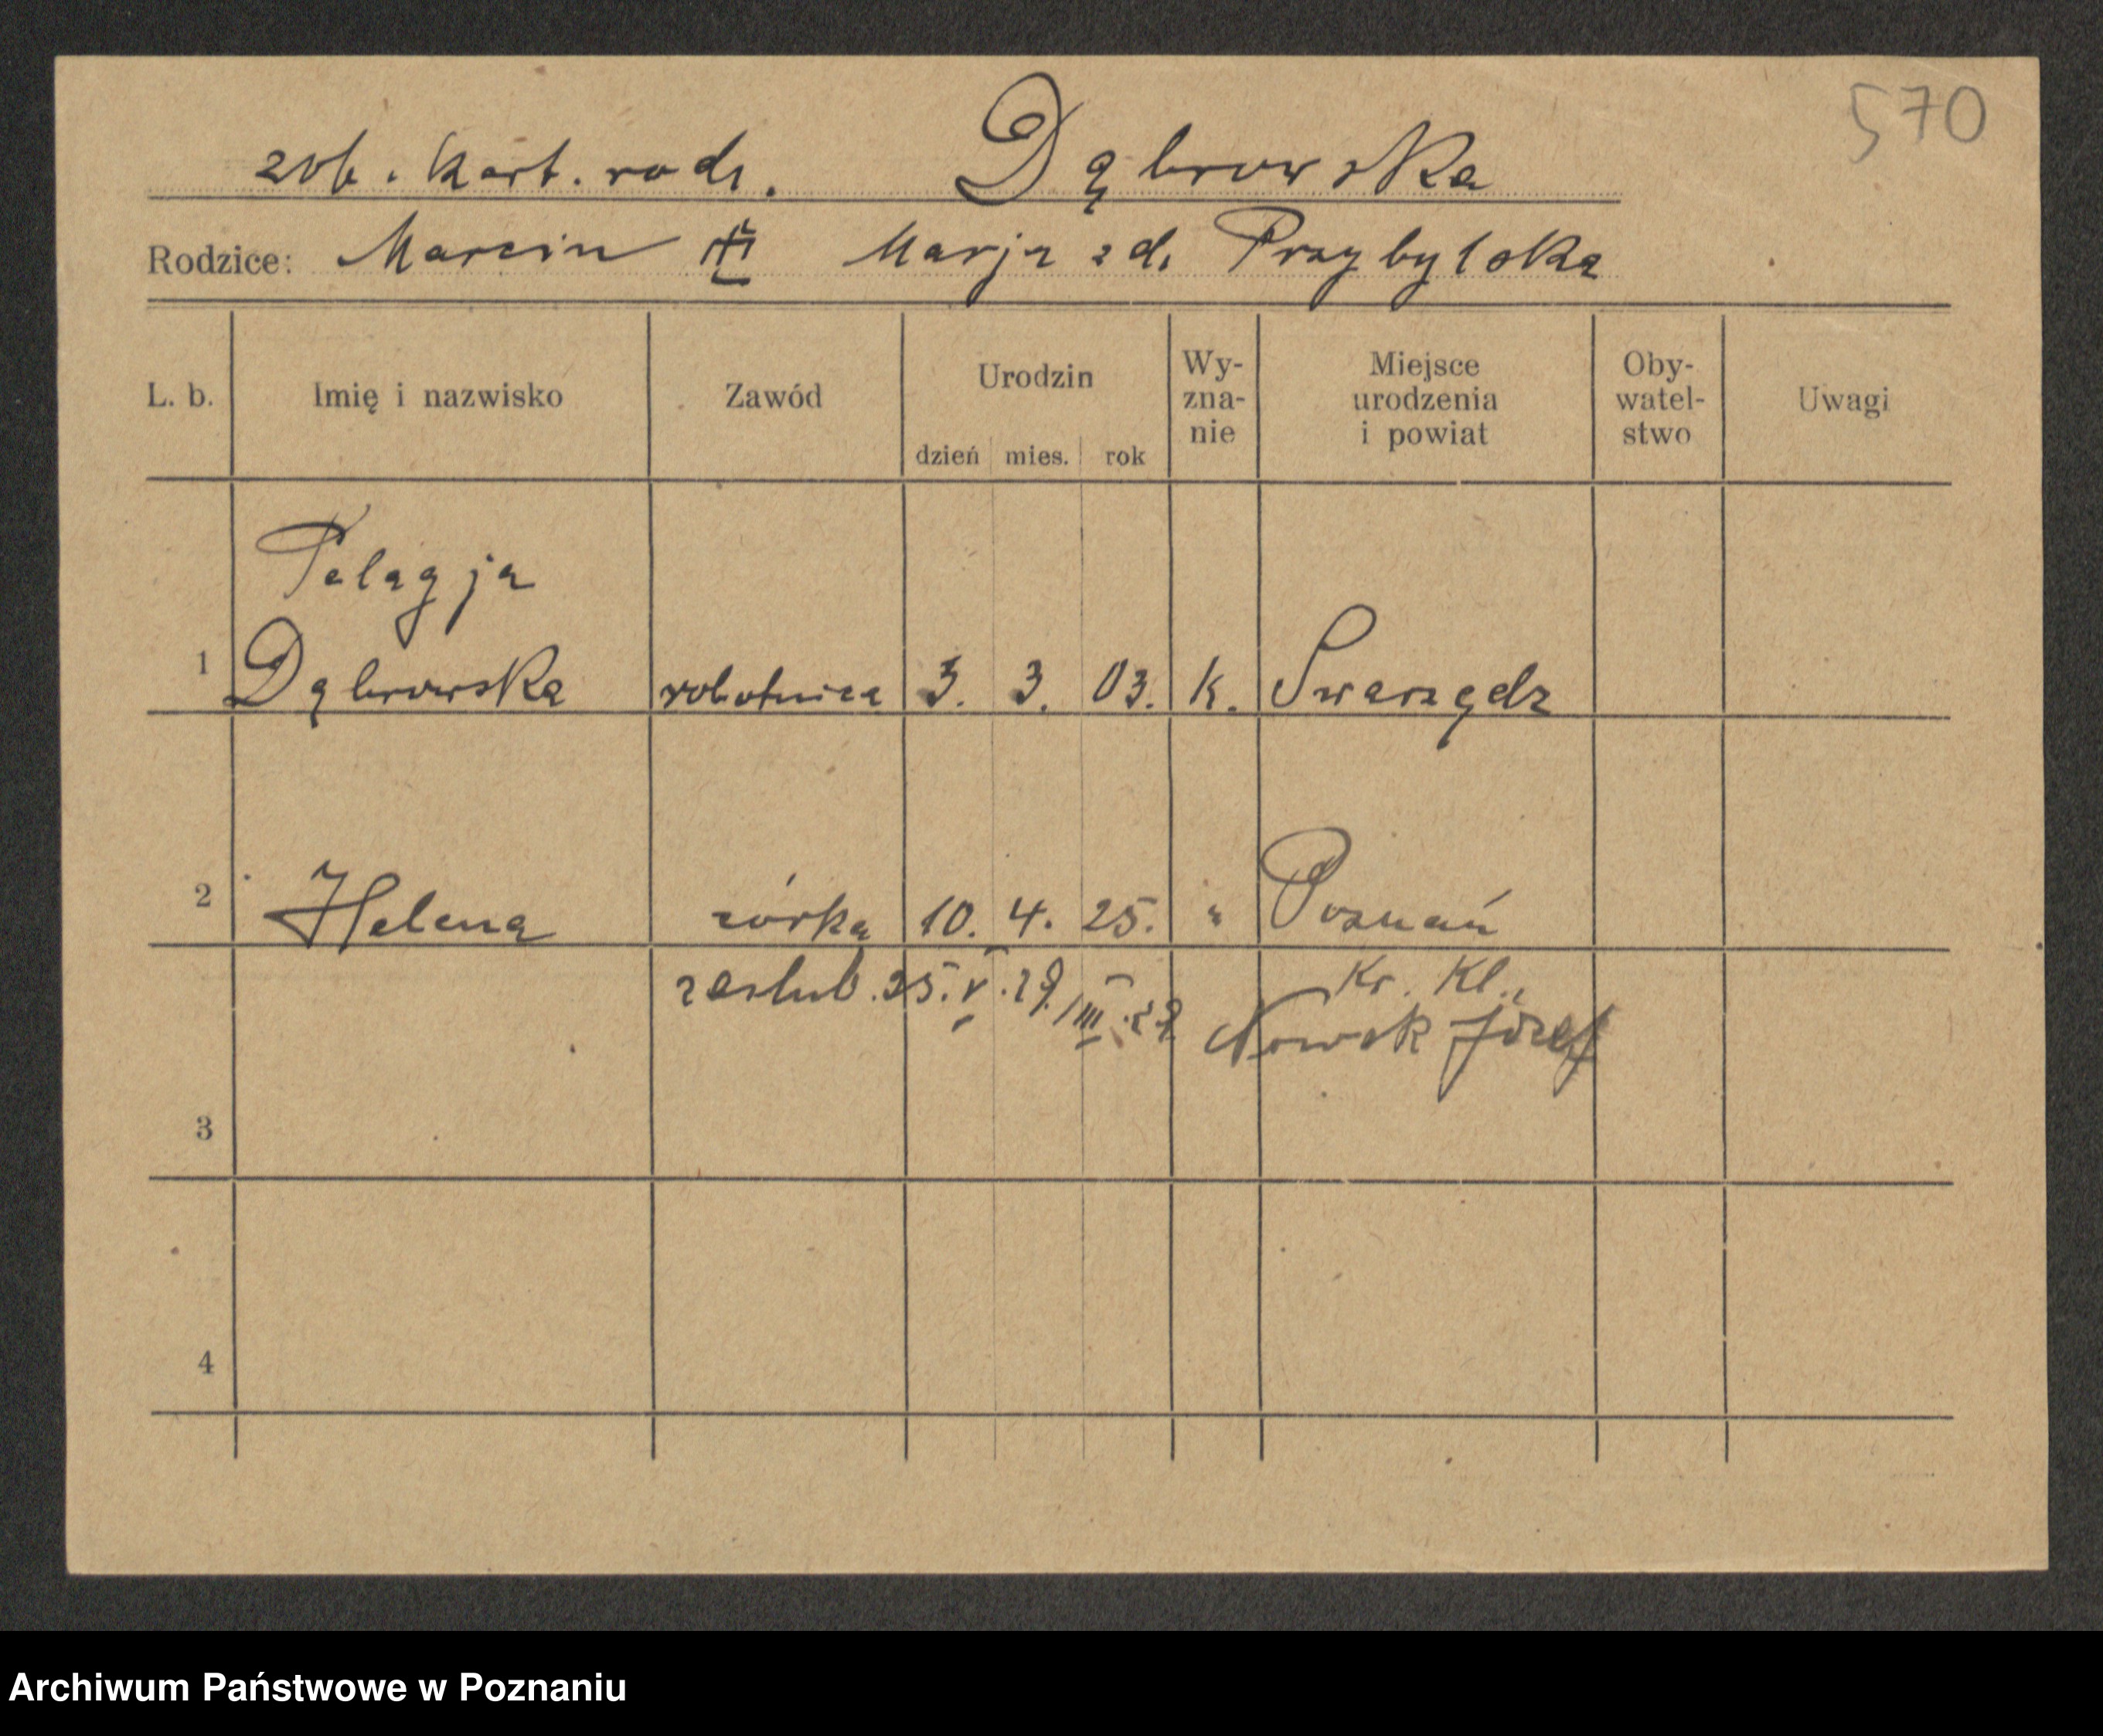 570
zob. Kart. rodz. Dąbrowska
Rodzice: Marcin III Marja zd. Przybylska
L. b. Imię i nazwisko Zawód Urodzin dzień mies. rok Wy-zna-nie Miejsce urodzenia i powiat Oby-watel-stwo Uwagi
Pelagja
1 Dąbrowska robotnica 3. 3. 03. k. Swarzędz
2 Helena córka 10. 4. 25. " Poznań
zaślub. 25. V. 29. Kr. Kl.,
Nowak Józef
3
4
Archiwum Państwowe w Poznaniu